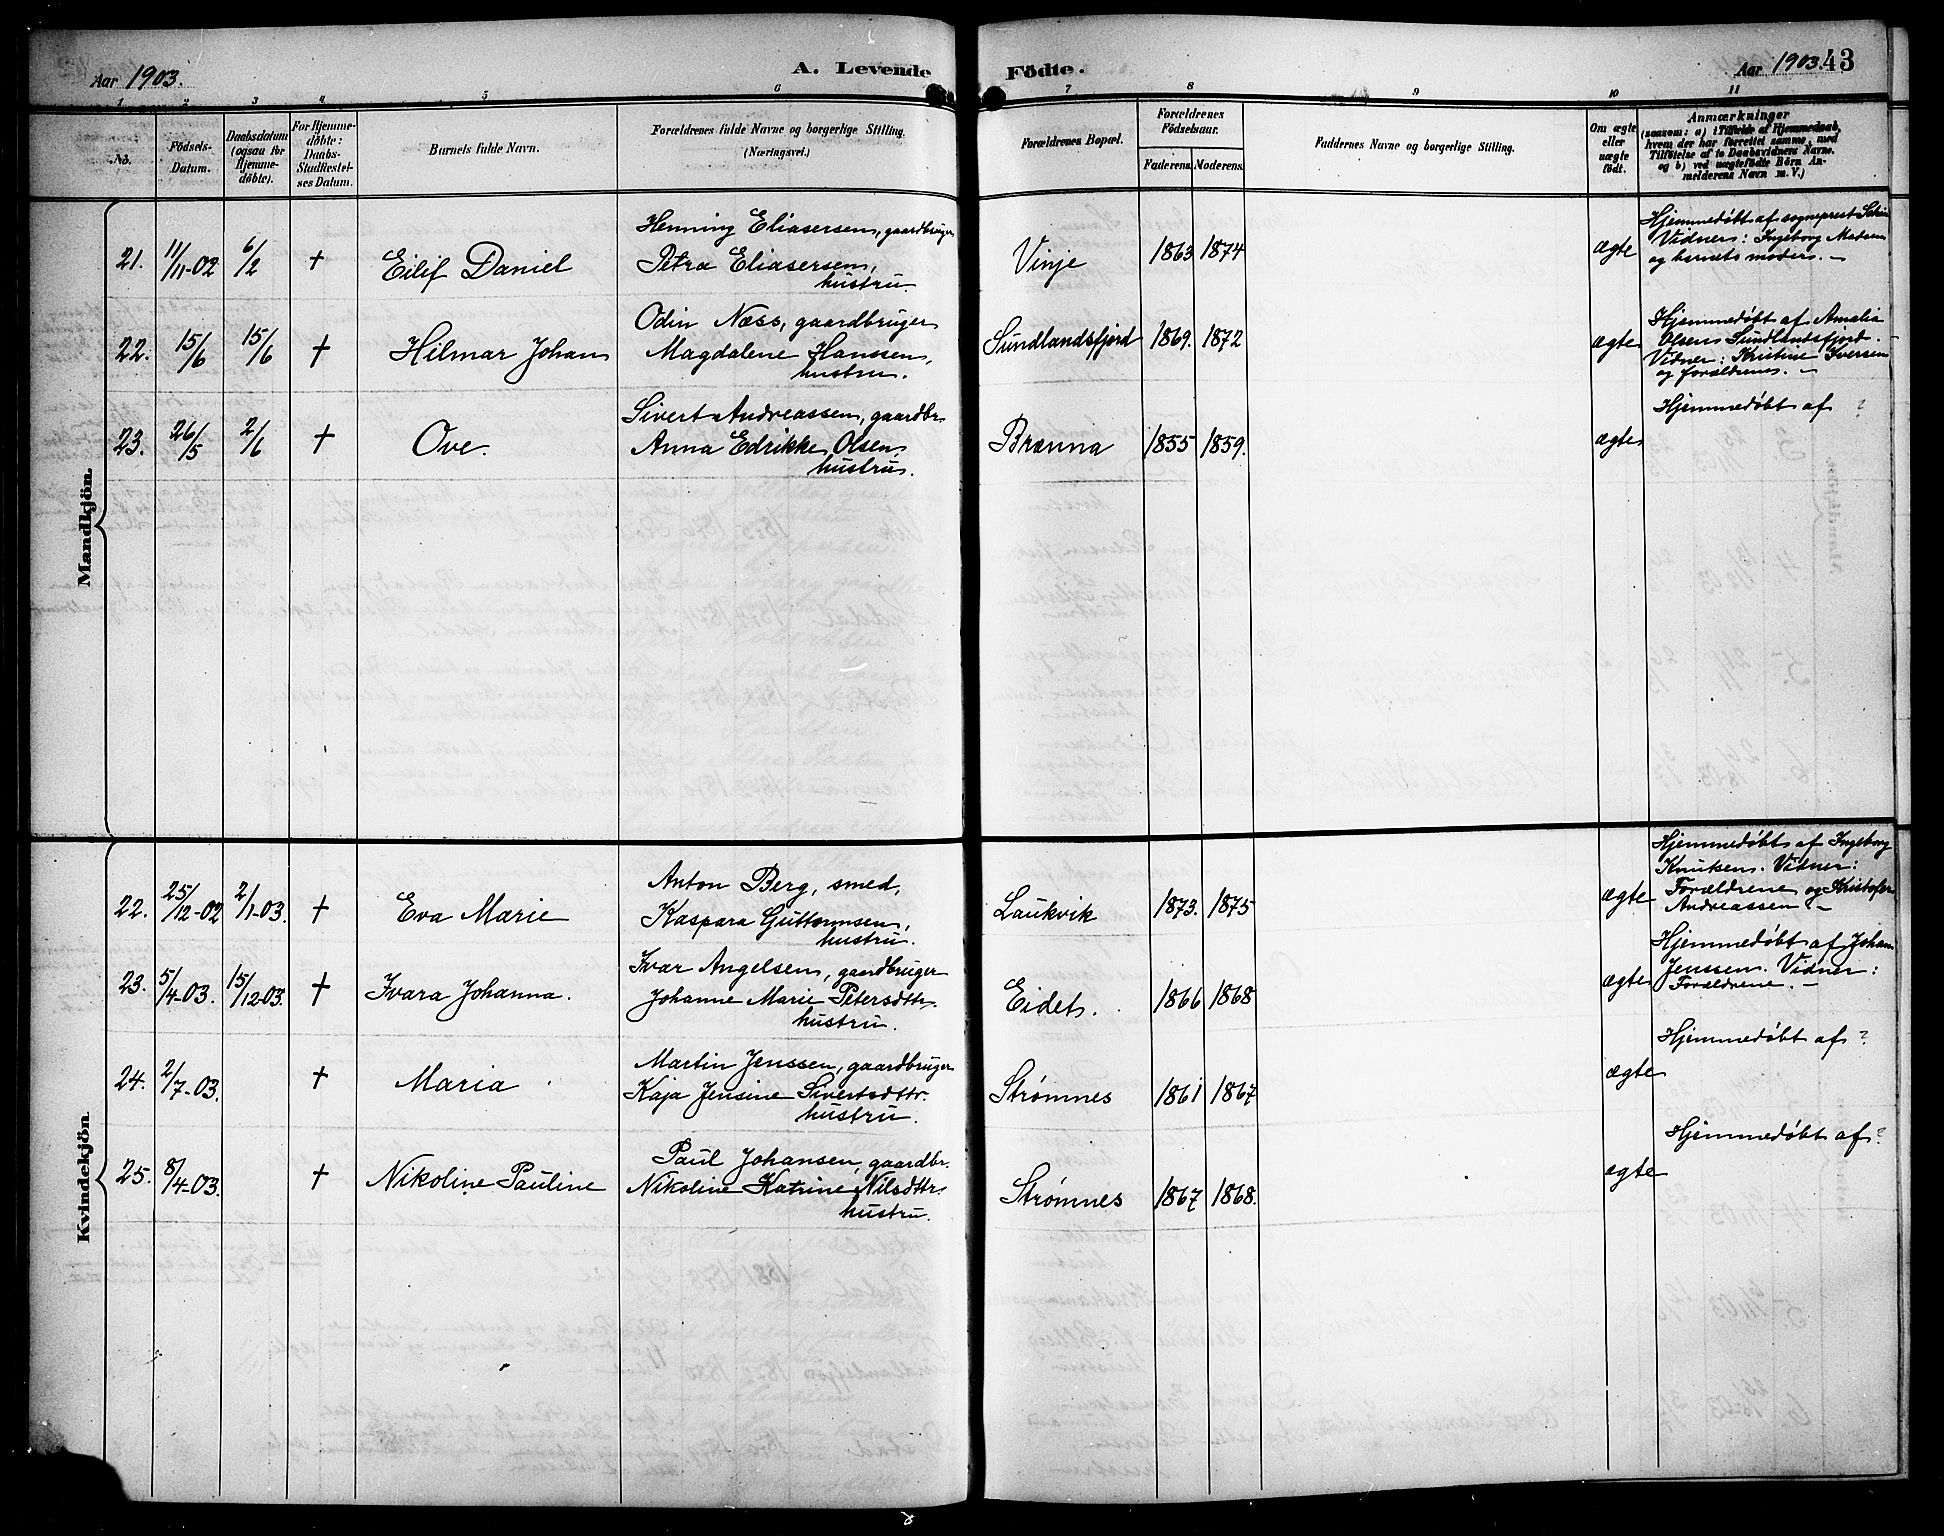 Aar 1903.
A. Levende Födte.
Aar 1903. 43
1 2 3 4 5 6 7 8 9 10 11
No.
Födsels-
Datum.
Daabsdatum
(ogsaa for
Hjemme-
döbte).
For Hjemme-
döbte:
Daabs-
Stadfæstel-
ses Datum.
Barnets fulde Navn.
Forældrenes fulde Navne og borgerlige Stilling.
(Næringsvei.)
Forældrenes Bopæl.
Forældrenes
Födselsaar.
Faderens. Moderens.
Faddernes Navne og borgerlige Stilling.
Om ægte
eller
uægte
födt.
Anmærkninger
(saasom: a) i Tilfælde af Hjemmedaab,
hvem der har forrettet samme, med
Tilföielse af to Daabsvidners Navne.
og b) ved uægtefödte Börn An-
melderens Navn m. V.)
Mandkjön.
21. 11/11-02 6/2 + Eilif Daniel
Henning Eliasersen, gaardbruger
Petra Eliasersen,
hustru.
Vinje 1863 1874 ægte
Hjemmedøbt af sogneprest
Vidner: Ingeborg Madsen
og barnets moder. –
22. 15/6 15/6 + Hilmar Johan
Odin Næss, gaardbruger
Magdalene Hanssen,
hustru.
Sundlandsfjord 1869. 1872 ægte
Hjemmedøbt af Amalia
Olsen Sundlandsfjord.
Vidner: Kristine Iversen
og forældrene. –
23. 26/5 2/6 + Ove.
Sivert Andreassen, gaardbr.
Anna Edrikke Olsen,
hustru.
Brænna 1855 1859. ægte
Hjemmedøbt af ?
Kvindekjön
22. 25/12-02 2/1-03. + Eva Marie
Anton Berg, smed,
Kaspara Guttormsen,
hustru.
Laukvik 1873. 1875 ægte
Hjemmedøbt af Ingeborg
Knutsen. Vidner:
Forældrene og Kristofer
Andreassen. –
23. 5/4-03. 15/12-03. + Ivara Johanna.
Ivar Angelsen, gaardbruger
Johanne Marie Petersdttr.
hustru.
Eidet. 1866 1868 ægte
Hjemmedøbt af Johan
Jenssen. Vidner:
Forældrene. –
24. 2/7-03. + Maria
Martin Jenssen, gaardbruger
Kaja Jensine Sivertsdttr.
hustru.
Strømnes 1861 1867 ægte
Hjemmedøbt af ?
25. 8/4-03. + Nikoline Pauline
Paul Johansen, gaardbr.
Nikoline Katrine Nilsdttr.
hustru.
Strømnes 1867 1868. ægte
Hjemmedøbt af ?